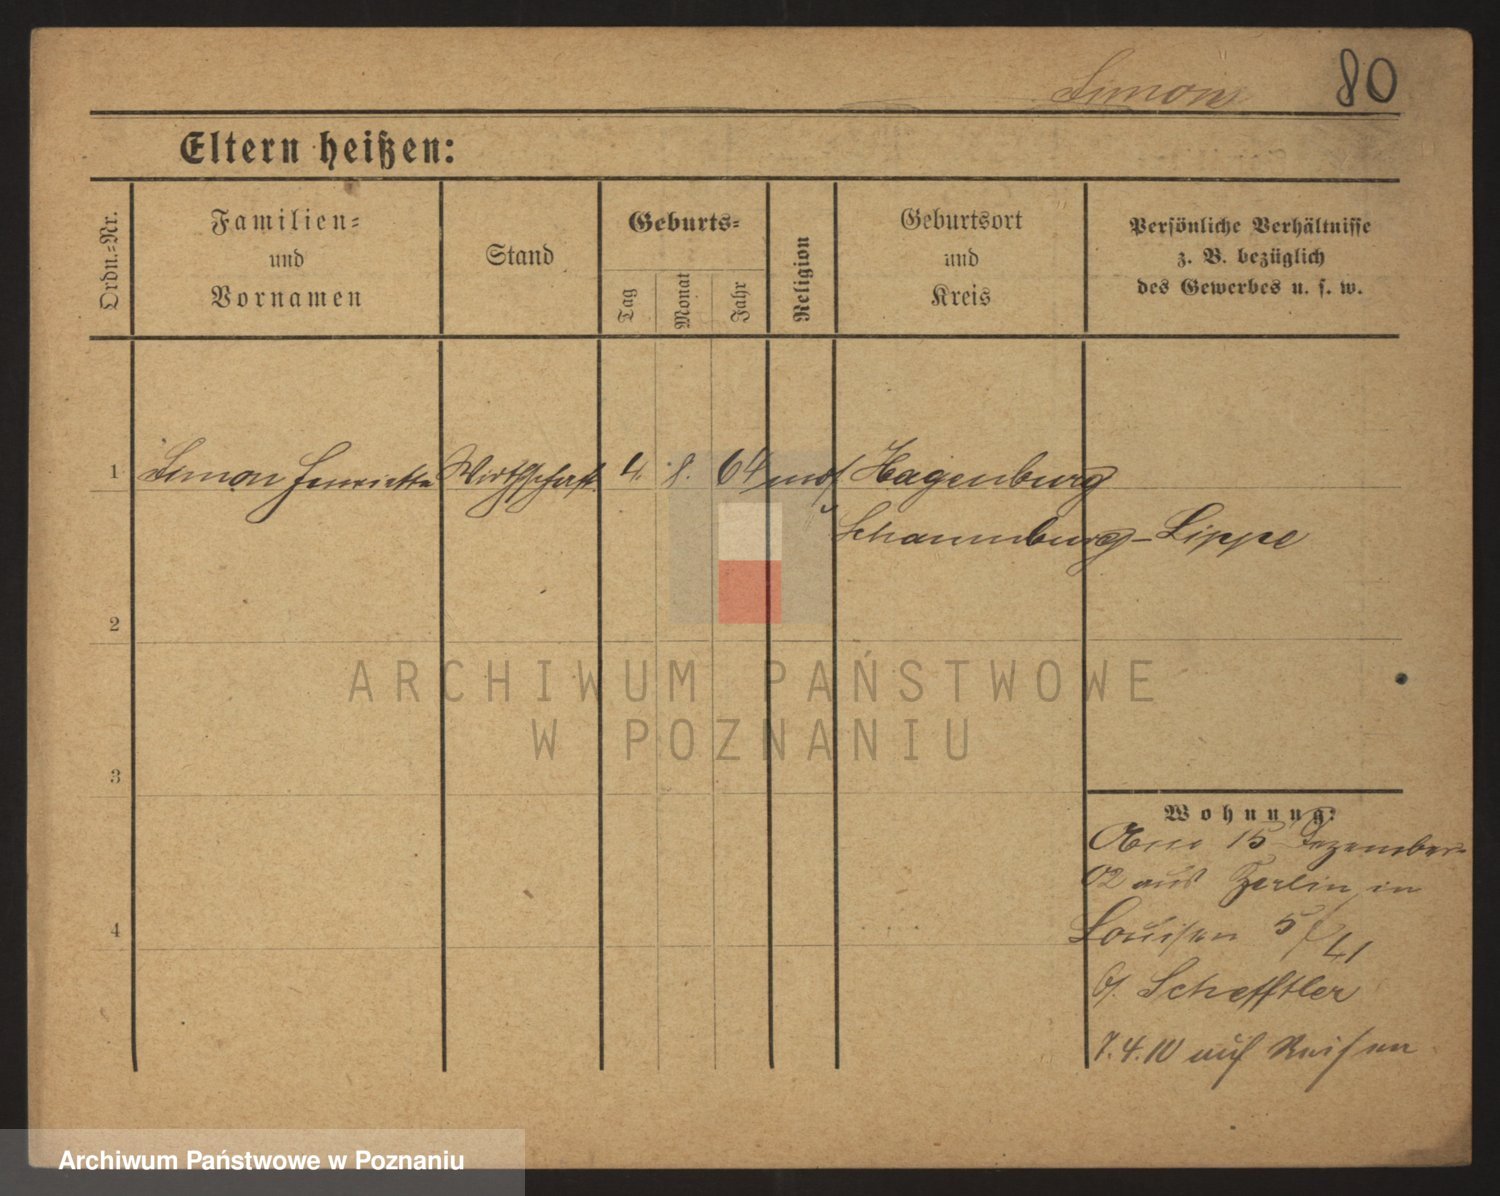 Simon 80
Eltern heißen:
Ordn.=Nr.
Familien=
und
Vornamen
Stand
Geburts=
Tag
Monat
Jahr
Religion
Geburtsort
und
Kreis
Persönliche Verhältnisse
z. B. bezüglich
des Gewerbes u. s. w.
1 Simon Henriette Wirthschaft. 4. 8. 64 mos Hagenburg
Schaumburg-Lippe
2
3
4
ARCHIWUM PAŃSTWOWE
W POZNANIU
Wohnung:
15 Dezember
02 aus Berlin in
Louisen 5/41
b/. Schefftler
7.4.10 auf Reisen
Archiwum Państwowe w Poznaniu